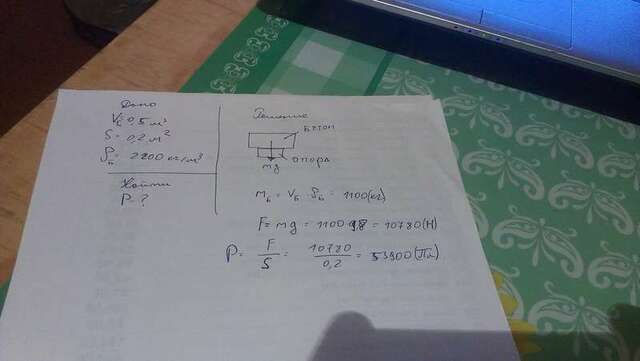 Дано
Vб 0,5 м³
S= 0,2 м²
ρб= 2200 кг/м³
Найти
P - ?
Решение
БЕТОН
ОПОРА
mg
mб = Vб · ρб = 1100 (кг)
F = mg = 1100 · 9,8 = 10780 (Н)
P = F/S = 10780/0,2 = 53900 (Па)